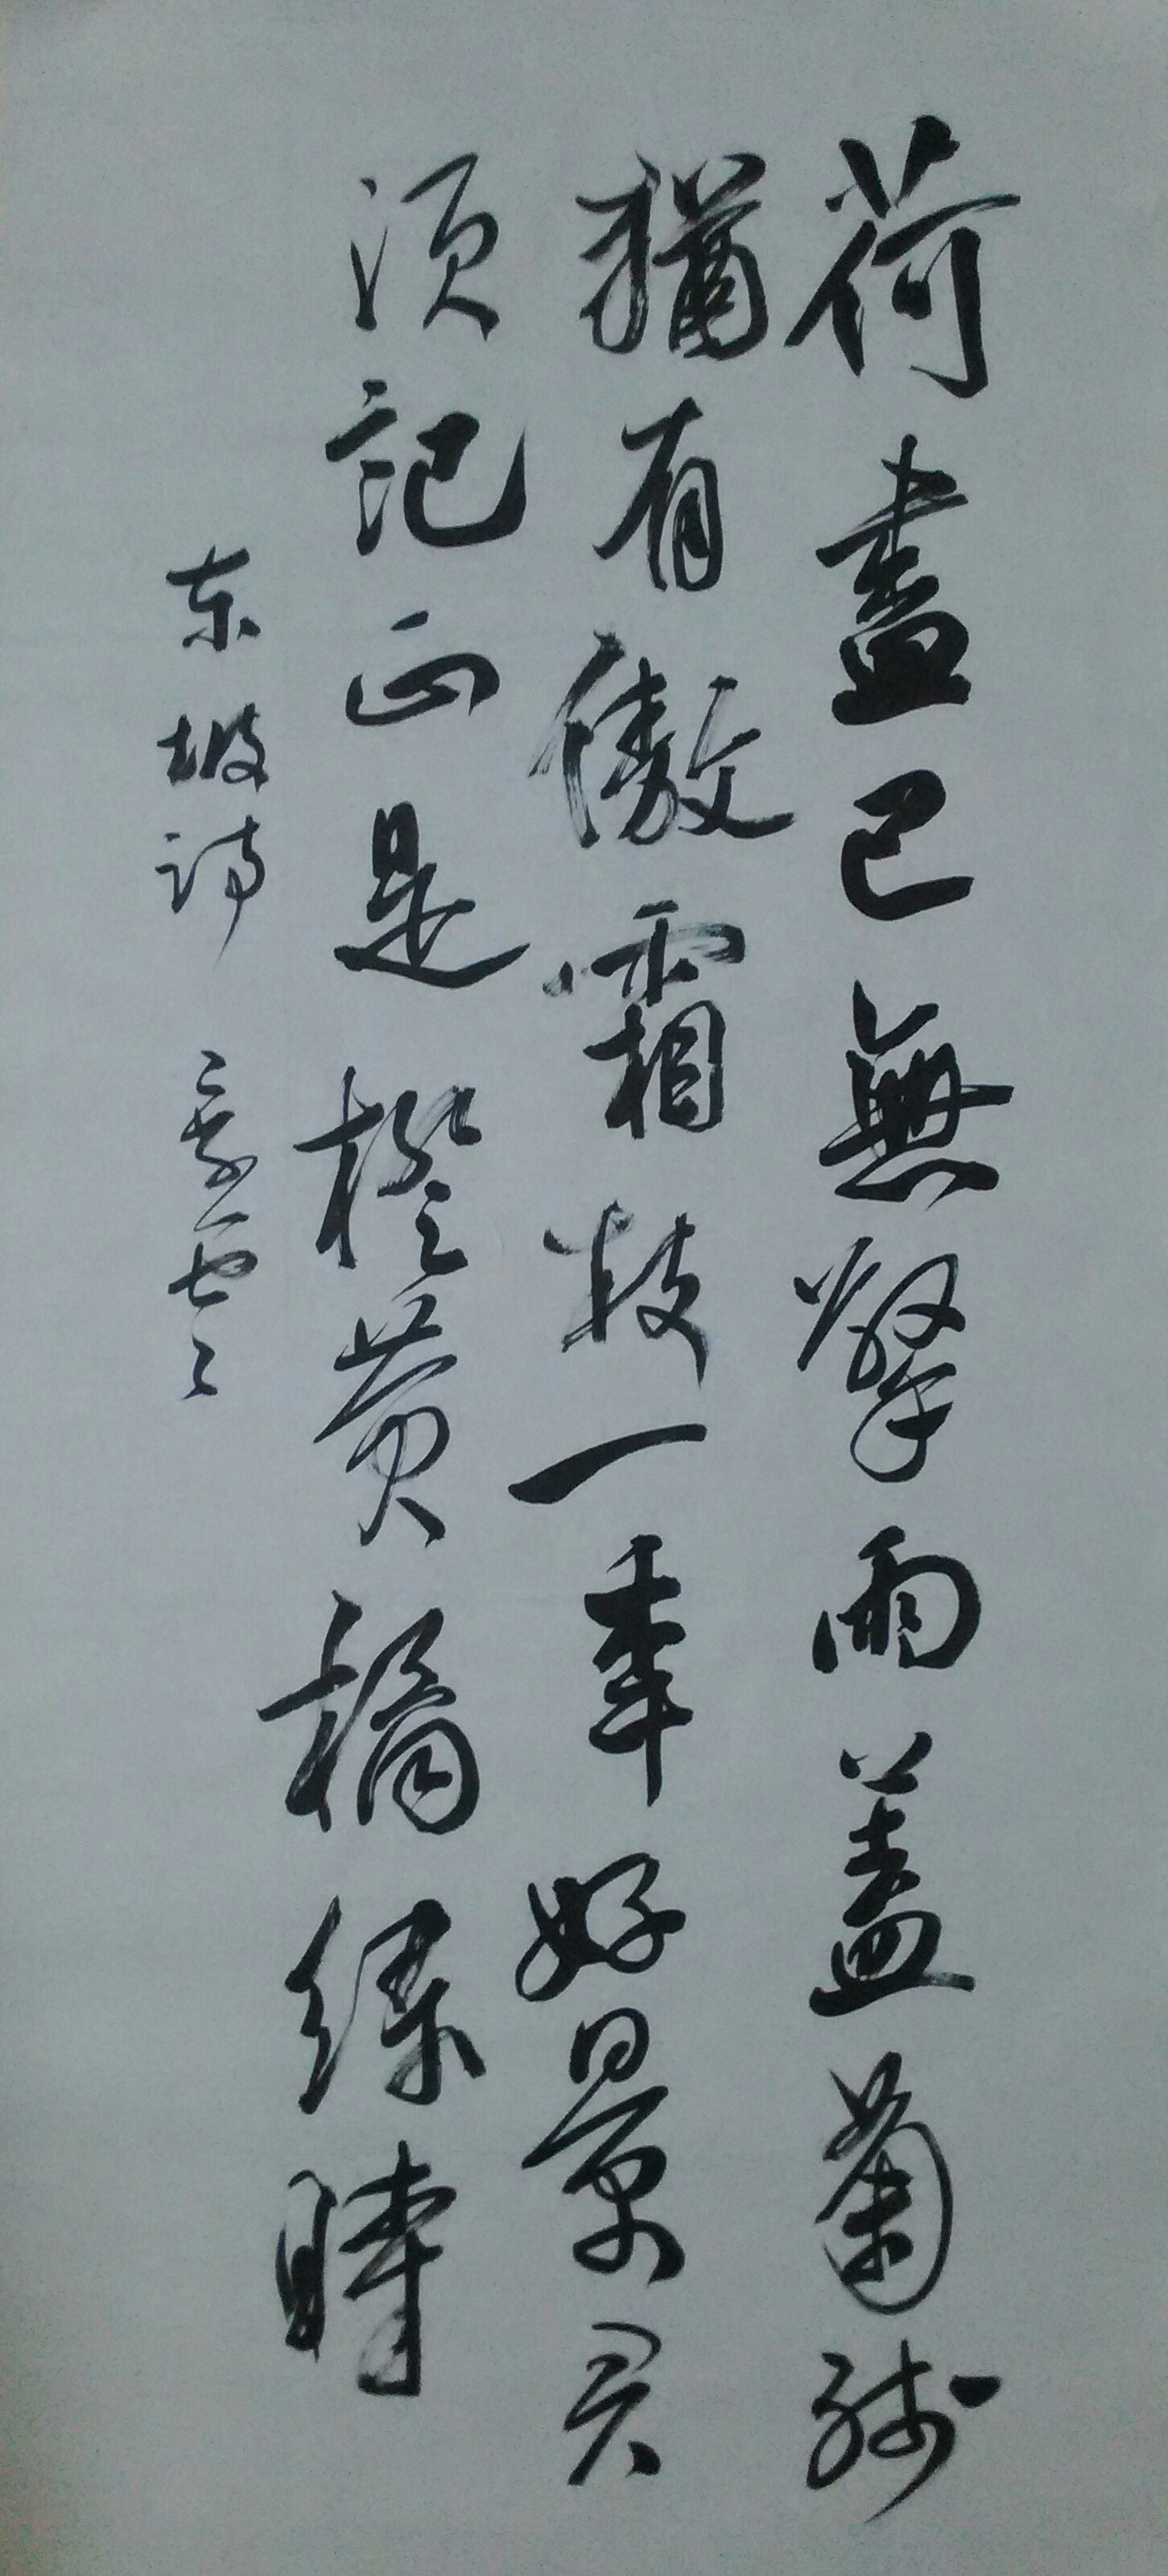 荷盡已無擎雨蓋菊殘
猶有傲霜枝一年好景君
須記正是橙黄橘綠時
东坡诗